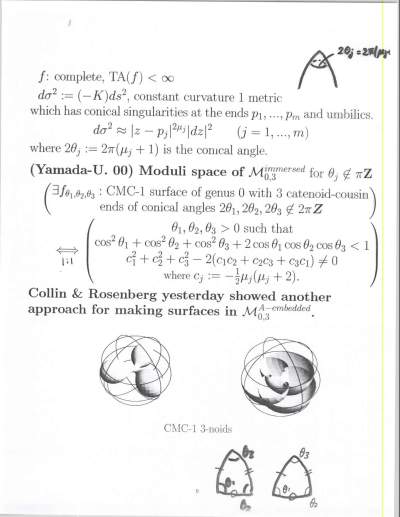 2θj = 2π(μj+
f: complete, TA(f) < ∞
dσ² := (−K)ds², constant curvature 1 metric
which has conical singularities at the ends p₁, ..., pₘ and umbilics.
dσ² ≈ |z − pⱼ|^{2μⱼ}|dz|² (j = 1, ..., m)
where 2θⱼ := 2π(μⱼ + 1) is the conical angle.
(Yamada-U. 00) Moduli space of M^{immersed}_{0,3} for θⱼ ∉ πZ
(∃f_{θ₁,θ₂,θ₃} : CMC-1 surface of genus 0 with 3 catenoid-cousin
ends of conical angles 2θ₁, 2θ₂, 2θ₃ ∉ 2πZ)
θ₁, θ₂, θ₃ > 0 such that
⟺ 1:1 (cos² θ₁ + cos² θ₂ + cos² θ₃ + 2 cos θ₁ cos θ₂ cos θ₃ < 1
c₁² + c₂² + c₃² − 2(c₁c₂ + c₂c₃ + c₃c₁) ≠ 0
where cⱼ := −½μⱼ(μⱼ + 2).)
Collin & Rosenberg yesterday showed another
approach for making surfaces in M^{A−embedded}_{0,3}.
CMC-1 3-noids
θ₃ θ₃
θ₁ θ₁
θ₂ θ₂